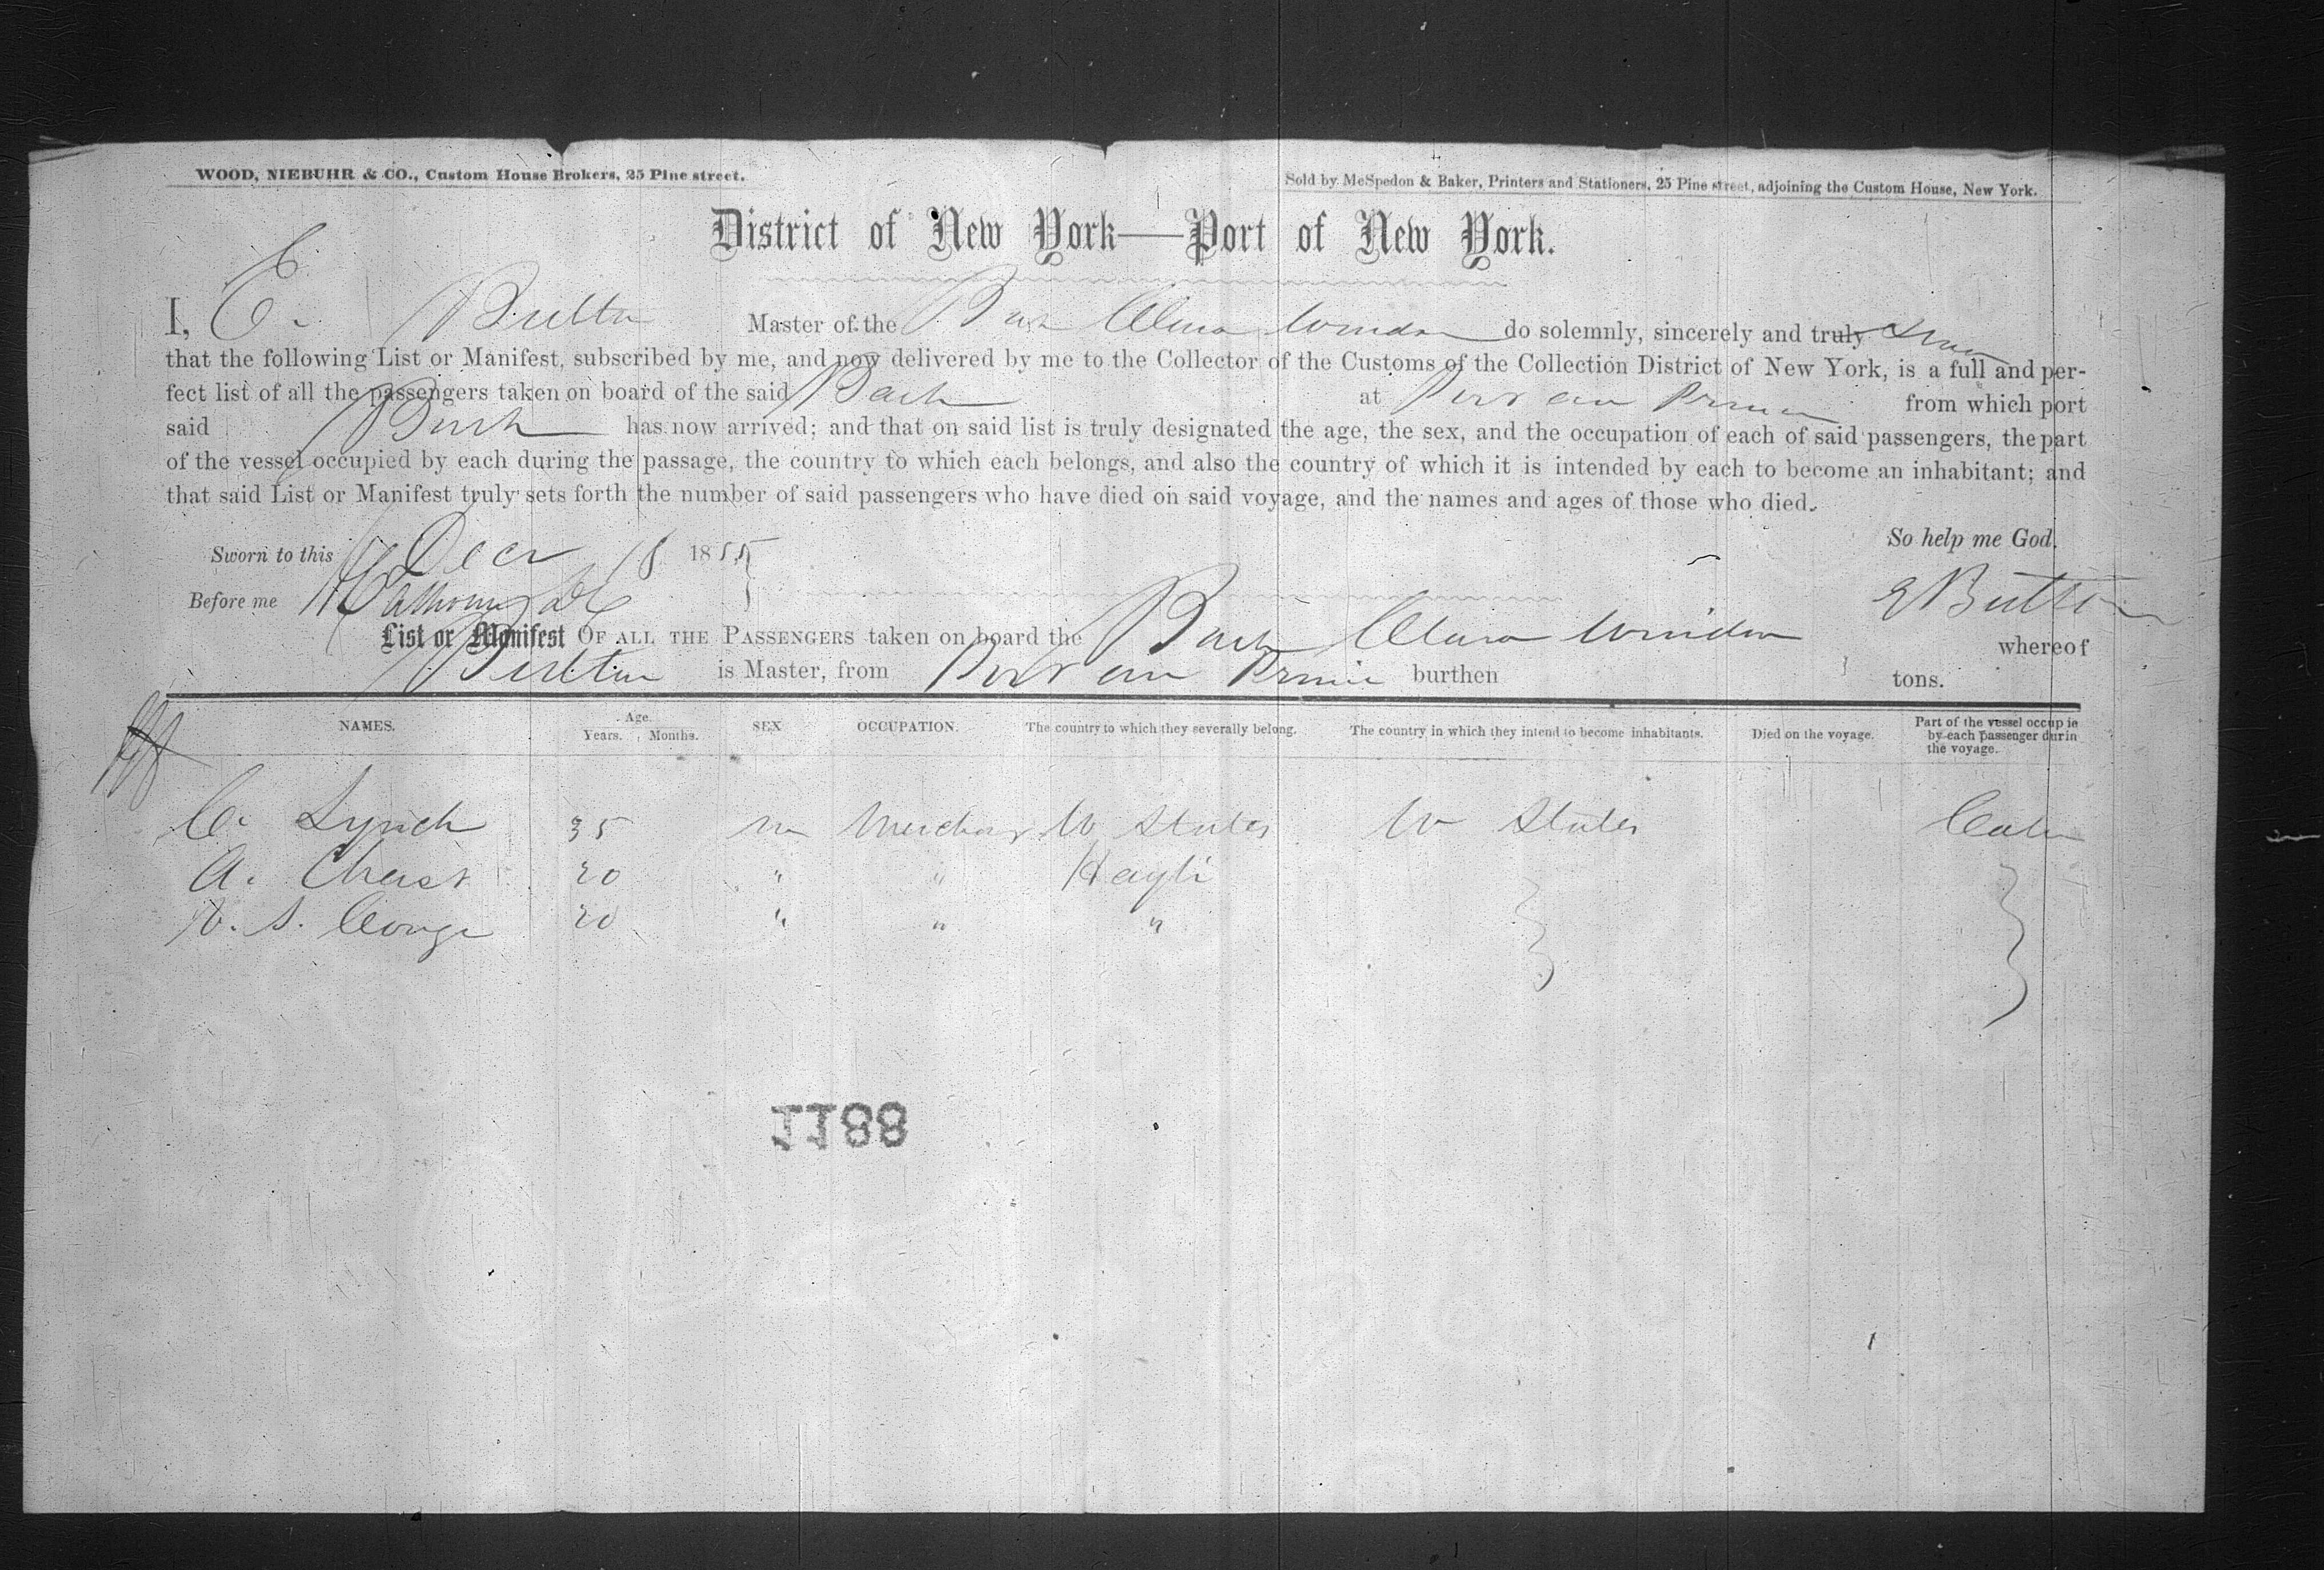 WOOD, NIEBUHR & CO., Custom House Brokers, 25 Pine street.
Sold by McSpedon & Baker, Printers and Stationers, 25 Pine street, adjoining the Custom House, New York.
District of New York—Port of New York.
I, E. Bulton Master of the Bark Clara Windsor do solemnly, sincerely and truly swear
that the following List or Manifest, subscribed by me, and now delivered by me to the Collector of the Customs of the Collection District of New York, is a full and per-
fect list of all the passengers taken on board of the said Bark at Port au Prince from which port
said Bark has now arrived; and that on said list is truly designated the age, the sex, and the occupation of each of said passengers, the part
of the vessel occupied by each during the passage, the country to which each belongs, and also the country of which it is intended by each to become an inhabitant; and
that said List or Manifest truly sets forth the number of said passengers who have died on said voyage, and the names and ages of those who died.
So help me God.
Sworn to this Decr 18 1855
Before me
E Bulton
List or Manifest OF ALL THE PASSENGERS taken on board the Bark Clara Windsor whereof
Bulton is Master, from Port au Prince burthen tons.
NAMES. Age. Years. Months. SEX OCCUPATION. The country to which they severally belong. The country in which they intend to become inhabitants. Died on the voyage. Part of the vessel occupie by each passenger durin the voyage.
C. Lynch 35 m Merchant U States U States Cabin
A. Chaist 20 " " Hayti
S. George 20 " " "
1188